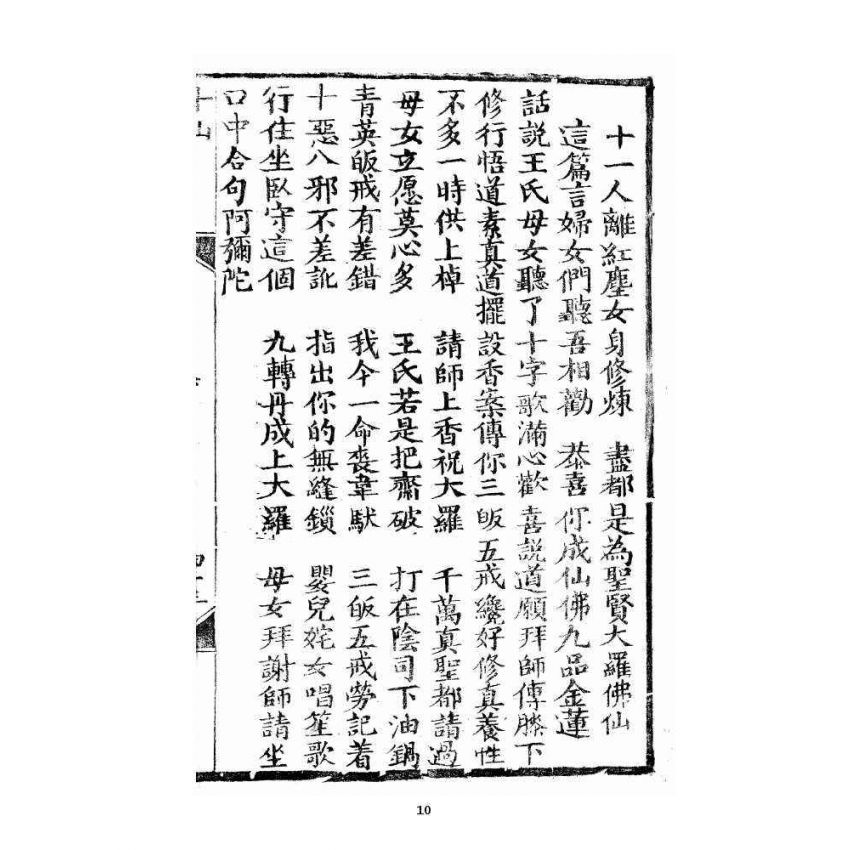 十一人離紅塵女身修煉　盡都是為聖賢大羅佛仙
這篇言婦女們聽吾相勸　恭喜你成仙佛九品金蓮
話說王氏母女聽了十字歌滿心歡喜說道願拜師傳膝下
修行悟道素真道擺設香案傳你三皈五戒纔好修真養性
不多一時供上棹　請師上香祝大羅　千萬真聖都請過
母女立愿莫心多　王氏若是把齋破　打在陰司下油鍋
青英皈戒有差錯　我今一命喪韋馱　三皈五戒勞記着
十惡八邪不差訛　指出你的無縫鎖　嬰兒姹女唱笙歌
行住坐臥守這個　九轉丹成上大羅　母女拜謝師請坐
口中合句阿彌陀
10